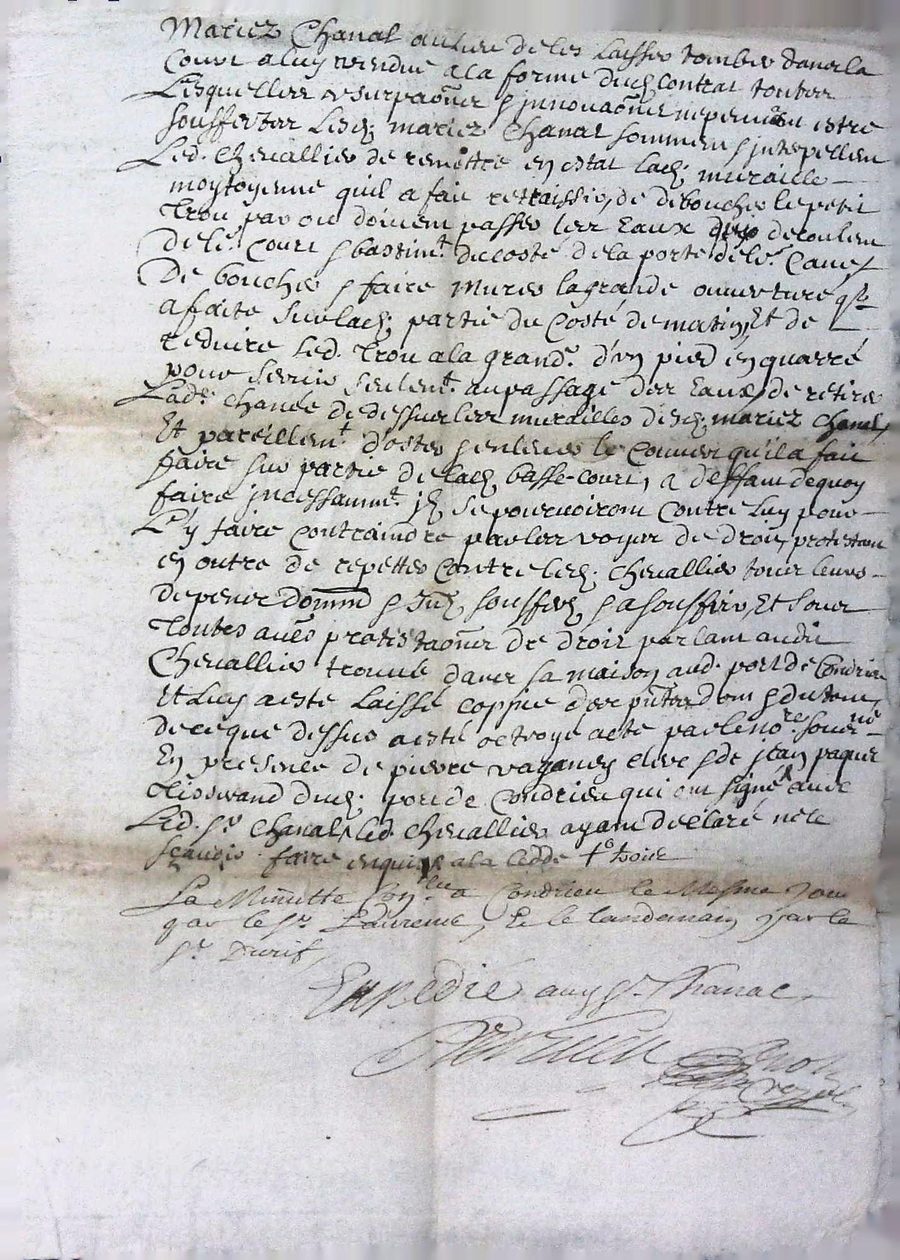 Mariez Chanal au lieu de les laisser tomber dans la
Cour a luy vendue a la forme dud. contrat toutes
Lesquelles usurpaons & innovaons ne peuvent estre
souffertes Lesd. mariez Chanal somment & interpellent
Led. Chevallier de remettre en estat lad. muraille
moytoyenne quil a fait de deboucher le petit
Trou par ou doivent passer les Eaux decoulen
de lad. Court & bastimt. du costé de la porte de lad. Cave &
De boucher & faire murer la grande ouverture qu
a faite sur lad. partie du Costé de matin, Et de
reduire led. Trou a la grandr. d'un pied en quarré
pour servir seulemt. au passage des Eaux, de retirer
Lad. de dessus les murailles desd. mariez Chanal,
Et pareillemt d'oster & enlever le Couvert qu'il a fait
faire sur partie de lad. basse-court, a deffaut de quoy
faire incessammt. ils se pourvoiront contre luy pour
L'y faire contraindre par les voyes de droit, protestant
en outre de repetter contre led. Chevallier tous leurs
depens domm & Int. soufferts & a souffrir, Et sous
Toutes aues protestaons de droit parlant audit
Chevallier trouvé dans sa maison aud. port de Condrieu
Et Luy a esté Laissé coppie des pntes dont & du tout,
de ce que dessus a esté octroyé acte par le nore. sousné
En presence de pierre clerc & de jean paquet
Tisserand dud. port de Condrieu qui ont signé avec
Led. sr. Chanal, led. Chevallier ayant declaré ne le
sçavoir faire enquis a la cedde
La Minutte a Condrieu le Mesme Jour
par le sr. Laurens, Et le landemain par le
sr. Durif,
Expedié auxd. sr. Chanal.